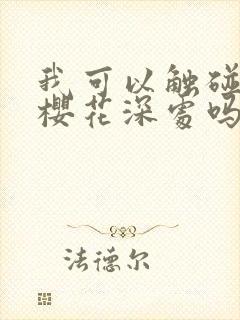 我可以触碰
樱花深处吗
法德尔